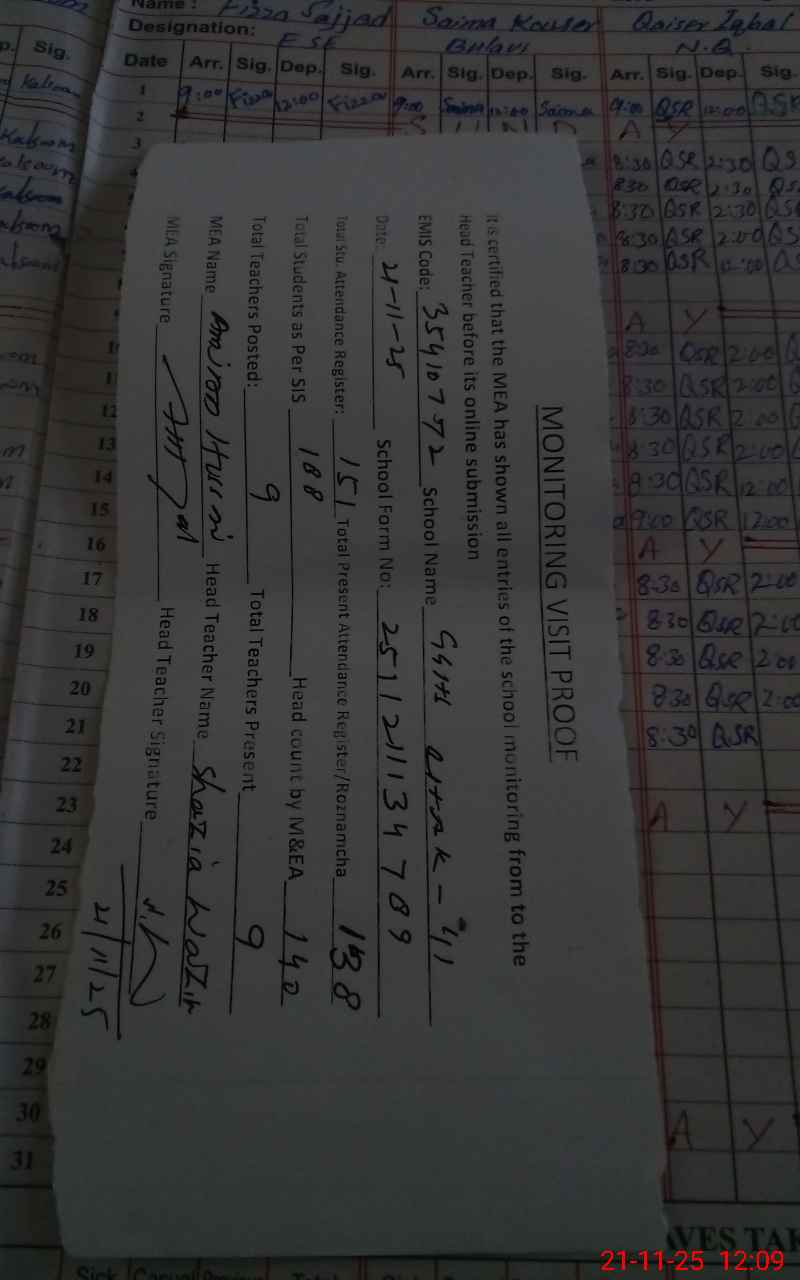 Name : Fizza Sajjad Saima Kouser Qaiser Iqbal
Designation: ESE N.Q.
Sig. Date Arr. Sig. Dep. Sig. Arr. Sig. Dep. Sig. Arr. Sig. Dep. Sig.
1 9:00 Fizza 12:00 Fizza 9:00 Saima 12:00 Saima 9:00 QSR 12:00 QSR
2 S U N D A Y
3 8:30 QSR 2:30 QS
8:30 QSR 2:30 QS
8:30 QSR 2:30 QS
8:30 QSR 2:00 QS
8:30 QSR 12:00
A Y
8:30 QSR 2:00
8:30 QSR 2:00
12 8:30 QSR 2:00
13 8:30 QSR 2:00
14 8:30 QSR 12:00
15 9:00 QSR 12:00
16 A Y
17 8:30 QSR 2:00
18 8:30 QSR 2:00
19 8:30 QSR 2:00
20 8:30 QSR 2:00
21 8:30 QSR
22
23 A Y
24
25
26
27
28
29
30 A Y
31
MONITORING VISIT PROOF
It is certified that the MEA has shown all entries of the school monitoring from to the
Head Teacher before its online submission
EMIS Code: 35410772 School Name
Date: 21-11-25 School Form No: 251121134789
Total Stu. Attendance Register: 151 Total Present Attendance Register/Roznamcha 138
Total Students as Per SIS 188 Head count by M&EA 140
Total Teachers Posted: 9 Total Teachers Present 9
MEA Name Head Teacher Name Shazia Wazir
MEA Signature Head Teacher Signature
21/11/25
AVES TAK
21-11-25 12:09